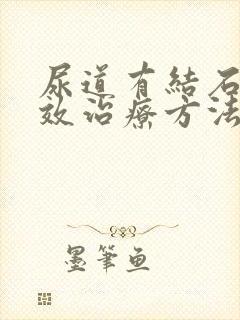 尿道有結石
效治療方法
墨筆魚